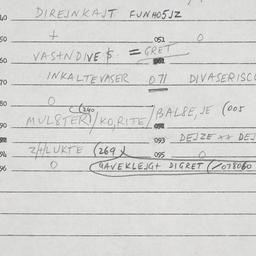 DIREINKAJT FUNHO5JZ
50 + 051 0
VASTNDIVE $ = GRET
60
INKALTEVASER 071 DIVASERISC
80 0
MUL8TER/KO,RITE/BALSE,JE (005
90
093 DEJZE ** DEJ
Z/+/LUKTE (269
095 0
96 0 GAVEKLEJG+ DIGRET (/078060